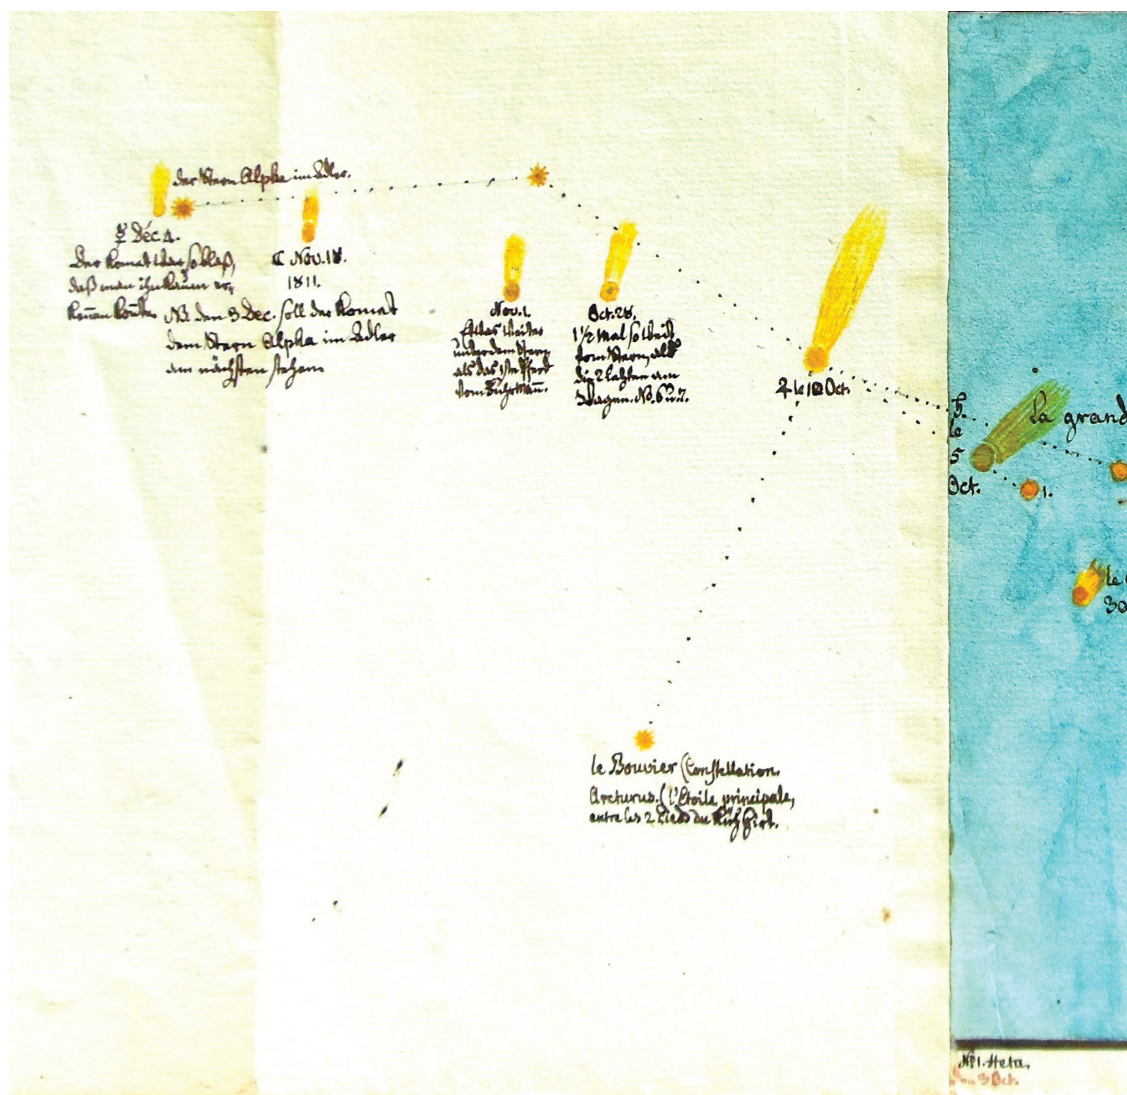 der Stern Alpha im Adler.
☿ Déc. 4.
Der Komet war so blaß,
daß man ihn kaum er,
kennen konnte.
☾ Nov. 18.
1811.
NB. den 3 Dec. soll der Komet
dem Stern Alpha im Adler
am nächsten stehen
Nov. 1.
Etwas weiter
unter dem Stern
als das 1te Pferd
vom Fuhrmañ.
Oct. 28.
1 1/2 Mal so weit
vom Stern, als
die 2 letzten am
Wagen. No. 6 u. 7.
♃ le 10 Oct.
♄.
le
5
Oct.
La grand
1.
le
30
le Bouvier (Constellation.
Arcturus. (l'Etoile principale,
entre les 2 Pieds du Küh Hirt.
No 1. Heta.
3 Oct.